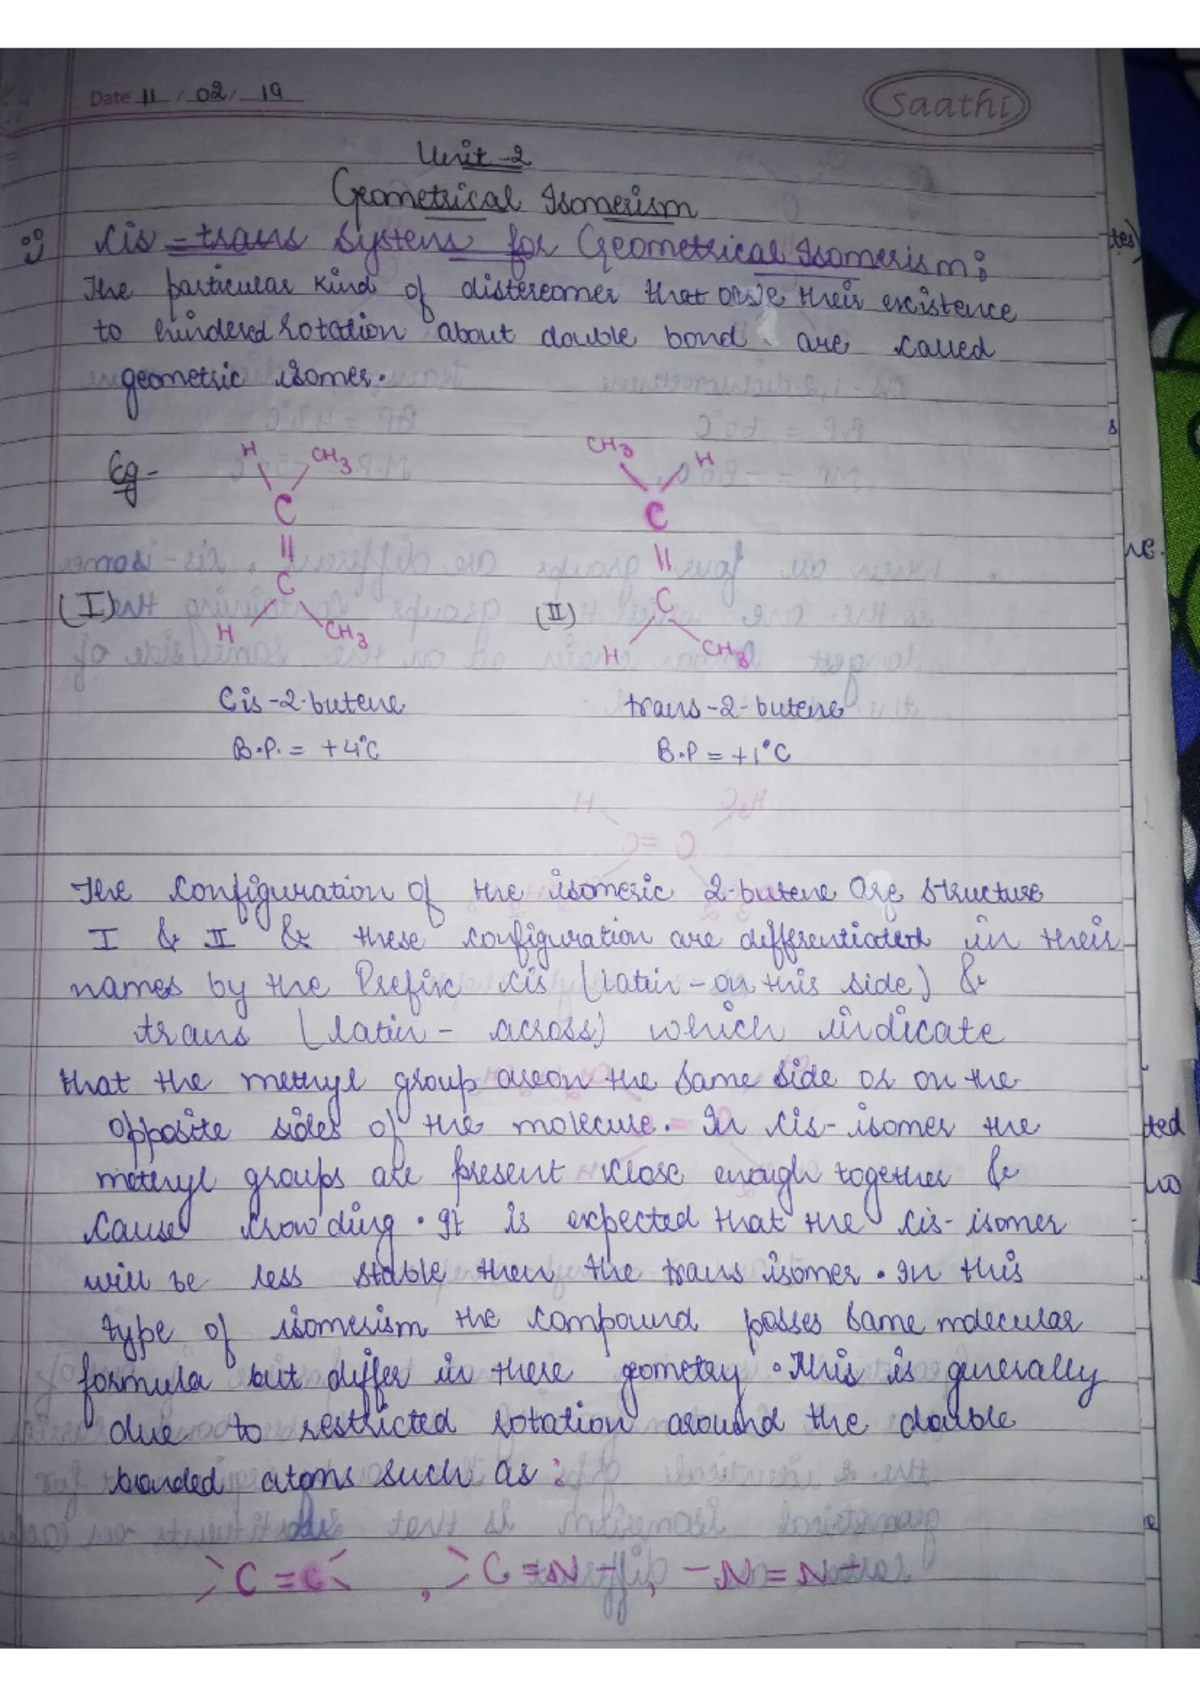 Date 11 / 02 / 19
Saathi
Unit-2
Geometrical Isomerism
Cis-trans system for Geometrical Isomerism:
The particular kind of distereomer that owe their existence
to hindered rotation about double bond are called
geometric isomer.
Eg-
H CH3 CH3 H
C C
|| ||
C C
(I) (II)
H CH3 H CH3
Cis-2-butene trans-2-butene
B.P. = +4°C B.P = +1°C
The configuration of the isomeric 2-butene are structure
I & II & these configuration are differentiated in their
names by the Prefix cis (latin - on this side) &
trans (latin - across) which indicate
that the methyl group are on the same side or on the
opposite sides of the molecule. In cis-isomer the
methyl groups are present close enough together &
cause crowding. It is expected that the cis-isomer
will be less stable then the trans isomer. In this
type of isomerism the compound posses same molecular
formula but differ in these geometry. This is generally
due to restricted rotation around the double
bonded atoms such as:
>C=C< , >C=N- , -N=N-